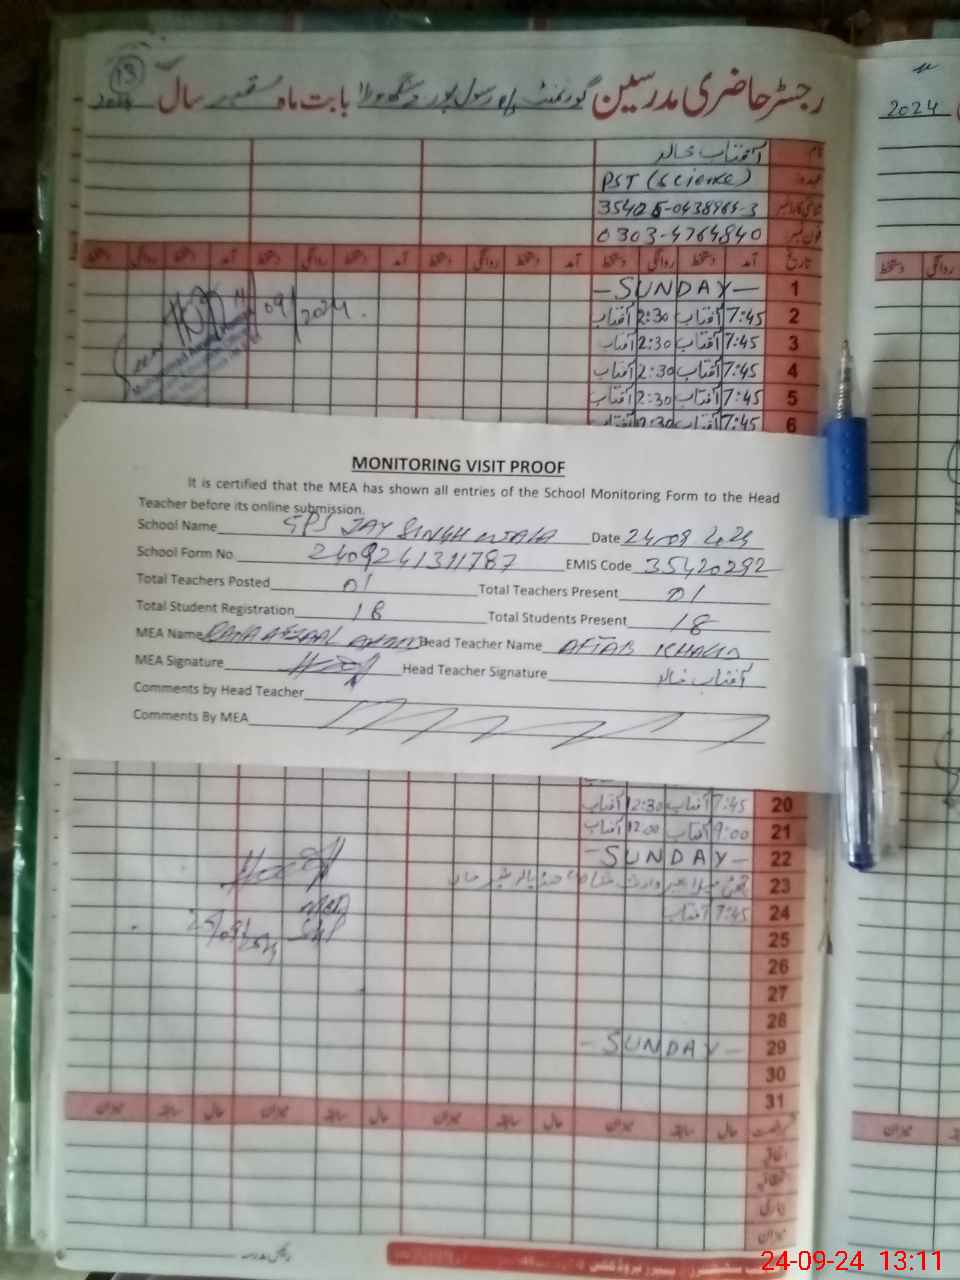 13
رجسٹر حاضری مدرسین گورنمنٹ رسول پور بابت ماہ ستمبر سال 2024
2024
نام آفتاب خالد
عہدہ PST (Science)
فون نمبر 0303-4764840
تاریخ آمد دستخط روانگی دستخط آمد دستخط روانگی دستخط آمد دستخط روانگی دستخط
روانگی دستخط
1 - SUNDAY -
2 7:45 آفتاب 2:30 آفتاب
3 7:45 آفتاب 2:30 آفتاب
4 7:45 آفتاب 2:30 آفتاب
5 7:45 آفتاب 2:30 آفتاب
6 7:45 آفتاب
09/2024.
MONITORING VISIT PROOF
It is certified that the MEA has shown all entries of the School Monitoring Form to the Head
Teacher before its online submission.
School Name GPS JAY SINGH WALA Date 24.09.2024
School Form No. 2409241311787 EMIS Code 35420292
Total Teachers Posted 01 Total Teachers Present 01
Total Student Registration 18 Total Students Present 18
MEA Name RANA AFZAAL AHMED Head Teacher Name AFTAB KHALID
MEA Signature Head Teacher Signature آفتاب خالد
Comments by Head Teacher
Comments By MEA
20 7:45 آفتاب 12:30 آفتاب
21 9:00 آفتاب 12:00 آفتاب
22 - SUNDAY -
23
24 7:45 آفتاب
25
26
27
28
29 - SUNDAY -
30
31
حال سابقہ میزان حال سابقہ میزان حال سابقہ میزان حال سابقہ میزان
میزان
اتفاقی
بیماری
میزان
24-09-24 13:11